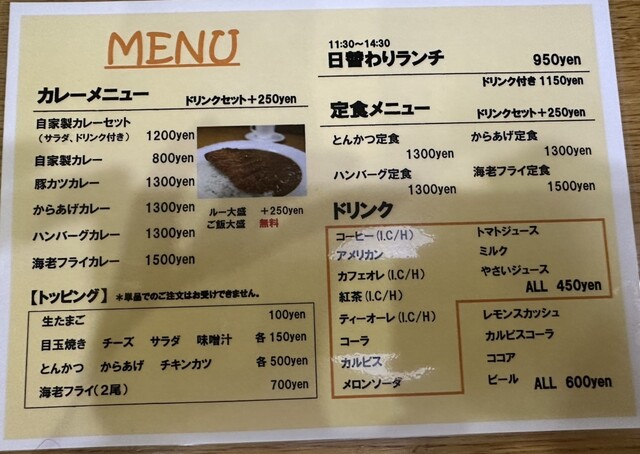 MENU
カレーメニュー ドリンクセット+250yen
自家製カレーセット
(サラダ、ドリンク付き) 1200yen
自家製カレー 800yen
豚カツカレー 1300yen
からあげカレー 1300yen
ハンバーグカレー 1300yen
海老フライカレー 1500yen
ルー大盛 +250yen
ご飯大盛 無料
【トッピング】 *単品でのご注文はお受けできません。
生たまご 100yen
目玉焼き チーズ サラダ 味噌汁 各150yen
とんかつ からあげ チキンカツ 各500yen
海老フライ(2尾) 700yen
11:30~14:30
日替わりランチ 950yen
ドリンク付き 1150yen
定食メニュー ドリンクセット+250yen
とんかつ定食 1300yen
からあげ定食 1300yen
ハンバーグ定食 1300yen
海老フライ定食 1500yen
ドリンク
コーヒー(I.C/H)
アメリカン
カフェオレ(I.C/H)
紅茶(I.C/H)
ティーオーレ(I.C/H)
コーラ
カルピス
メロンソーダ
トマトジュース
ミルク
やさいジュース
ALL 450yen
レモンスカッシュ
カルピスコーラ
ココア
ビール ALL 600yen